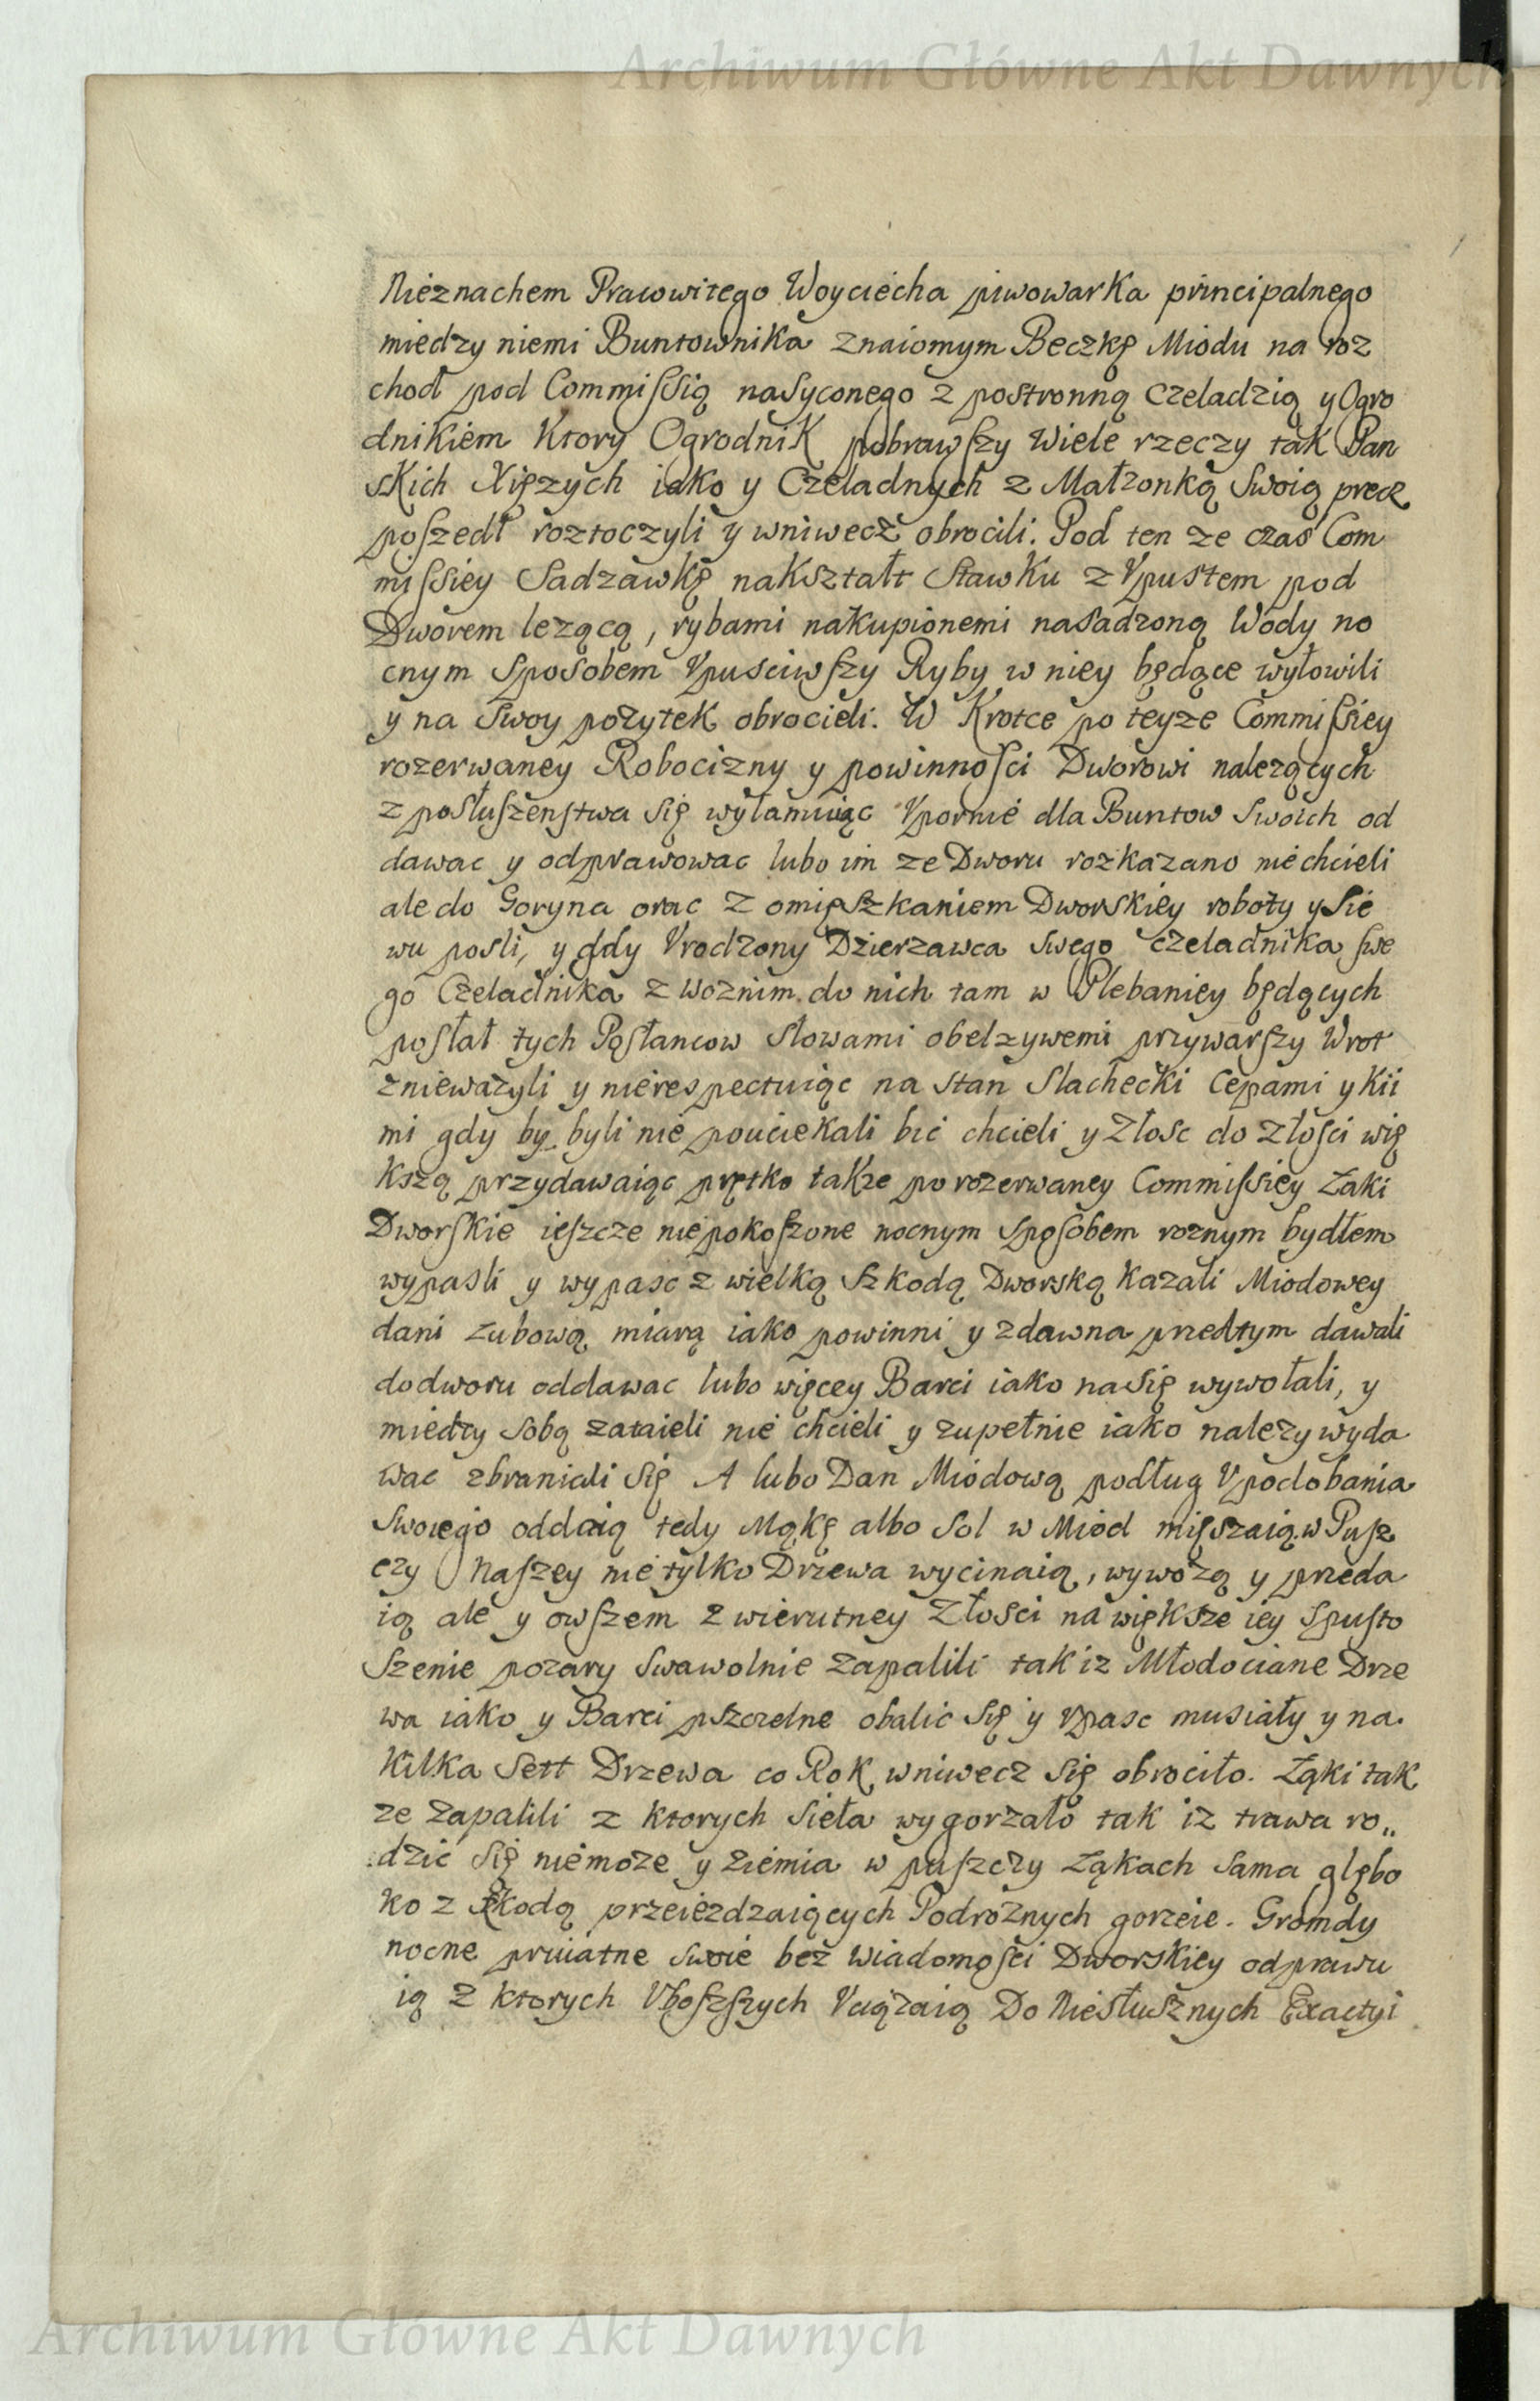 Archiwum Główne Akt Dawnych
Nieznachem Pracowitego Woyciecha piwowarka principalnego
miedzy niemi Buntownika znaiomym Beczkę Miodu na roz
chod pod Commissią nasyconego z postronną czeladzią y Ogro
dnikiem Ktory Ogrodnik pobrawszy Wiele rzeczy tak Pan
skich Xięzych iako y Czeladnych z Małzonką Swoią precz
poszedł roztoczyli y wniwecz obrocili. Pod ten ze czas Com
missiey Sadzawkę nakształt Stawku z Vpustem pod
Dworem lezącą, rybami nakupionemi nasadzoną Wody no
cnym Sposobem Vpusciwszy Ryby w niey będące wyłowili
y na Swoy pożytek obrocieli. W Krotce po teyze Commissiey
rozerwaney Robocizny y powinnosci Dworowi nalezących
z posłuszenstwa się wyłamuiąc Vpornie dla Buntow Swoich od
dawac y odprawowac lubo im ze Dworu rozkazano niechcieli
ale do Goryna orac z omięszkaniem Dworskiey roboty y Sie
wu posli, y gdy Vrodzony Dzierzawca swego czeladnika swe
go Czeladnika z woznim do nich tam w Plebaniey będących
posłał tych Posłancow słowami obelzywemi przywarszy Wrot
zniewazyli y nierespectuiąc na Stan Slachecki Cepami y Kii
mi gdy by byli nie pouciekali bic chcieli y Złosc do złosci wię
kszą przydawaiąc prętko takze po rozerwaney Commissiey Łaki
Dworskie ieszcze niepokoszone nocnym sposobem roznym bydłem
wypasli y wypasc z wielką Szkodą Dworską kazali Miodowey
dani Łubową miarą iako powinni y zdawna przedtym dawali
do dworu oddawac lubo więcey Barci iako na się wywołali, y
miedzy sobą zataieli nie chcieli y zupełnie iako nalezy wyda
wac zbraniali się A lubo Dan Miodową podług Vpodobania
Swoiego oddaią tedy Mąkę albo Sol w Miod mięszaią w Pusz
czy Naszey nie tylko Drzewa wycinaią, wywożą y przeda
ią ale y owszem z wierutney Złosci na większe iey Spusto
szenie pozary Swawolnie zapalili tak iz Młodociane Drze
wa iako y Barci pszczelne obalic się y vpasc musiały y na
kilka Sett Drzewa co Rok wniwecz się obrociło. Łąki tak
ze zapalili z ktorych Sieła wygorzało tak iz trawa ro„
dzic się niemoże y ziemia w puszczy Łąkach sama glębo
ko z szkodą przeiezdzaiących Podroznych gorzeie. Gromdy
nocne priuatne swoie bez wiadomosci Dworskiey odprawu
ią z ktorych Vboszszych Vciązaią Do Niesłusznych Exactyi
Archiwum Główne Akt Dawnych